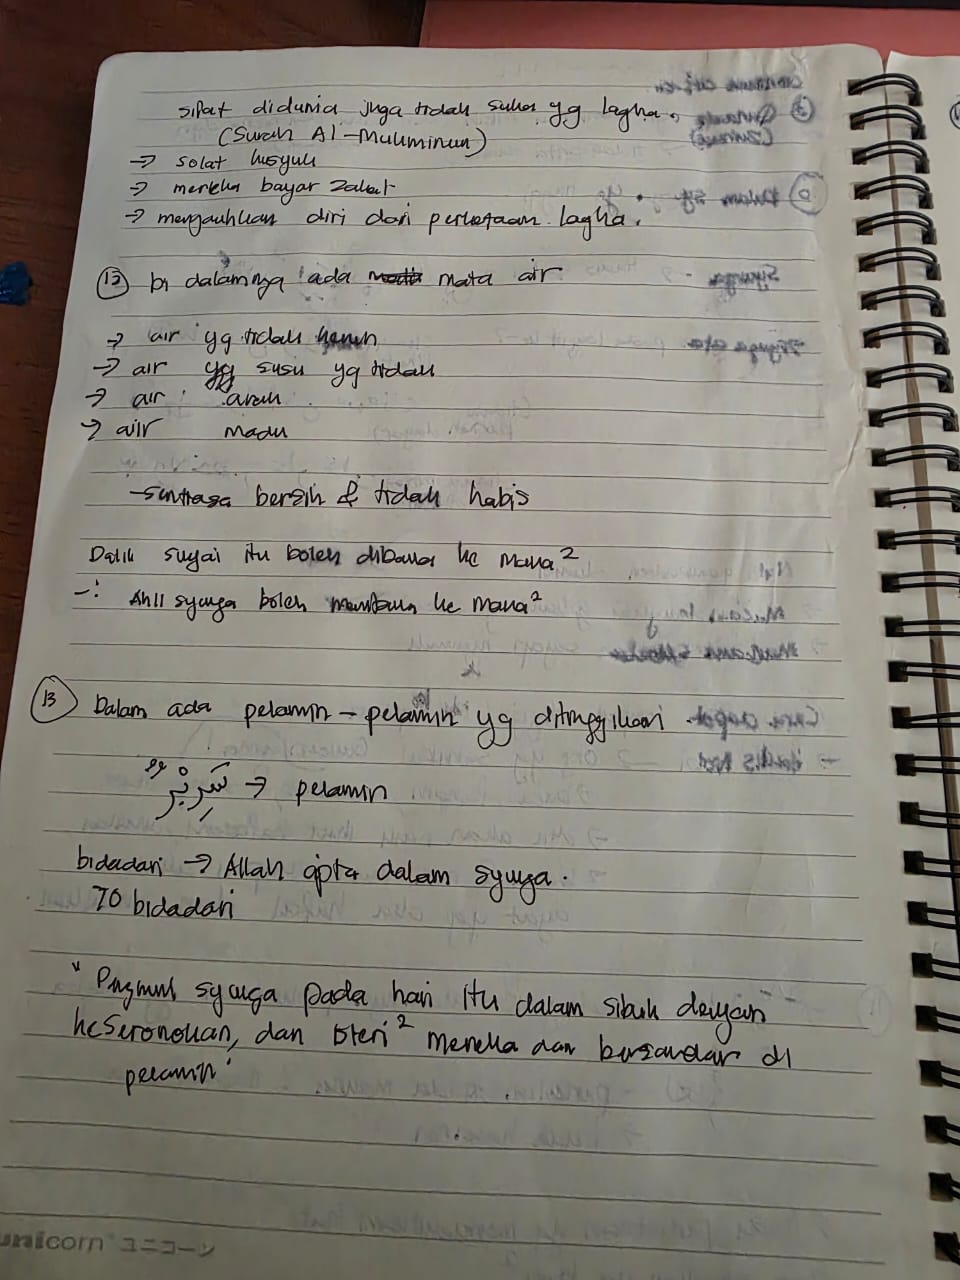 sifat didunia juga tidak suka yg lagha.
(Surah Al-Mukminun)
→ solat kusyuk
→ mereka bayar zakat
→ menjauhkan diri dari perkataan lagha.
(12) Di dalamnya ada mata air
→ air yg tidak
→ air susu yg tidak
→ air arak
→ air madu
- sentiasa bersih & tidak habis
sugai itu boleh dibawa ke mana²
∴ Ahli syurga boleh ke mana²
(13) Dalam ada pelamin - pelamin yg ditinggikan
→ pelamin
bidadari → Allah cipta dalam syurga.
70 bidadari
" syurga pada hari itu dalam sibuk dengan
keseronokan, dan isteri² mereka dan bersandar di
pelamin"
unicorn ユニコーン